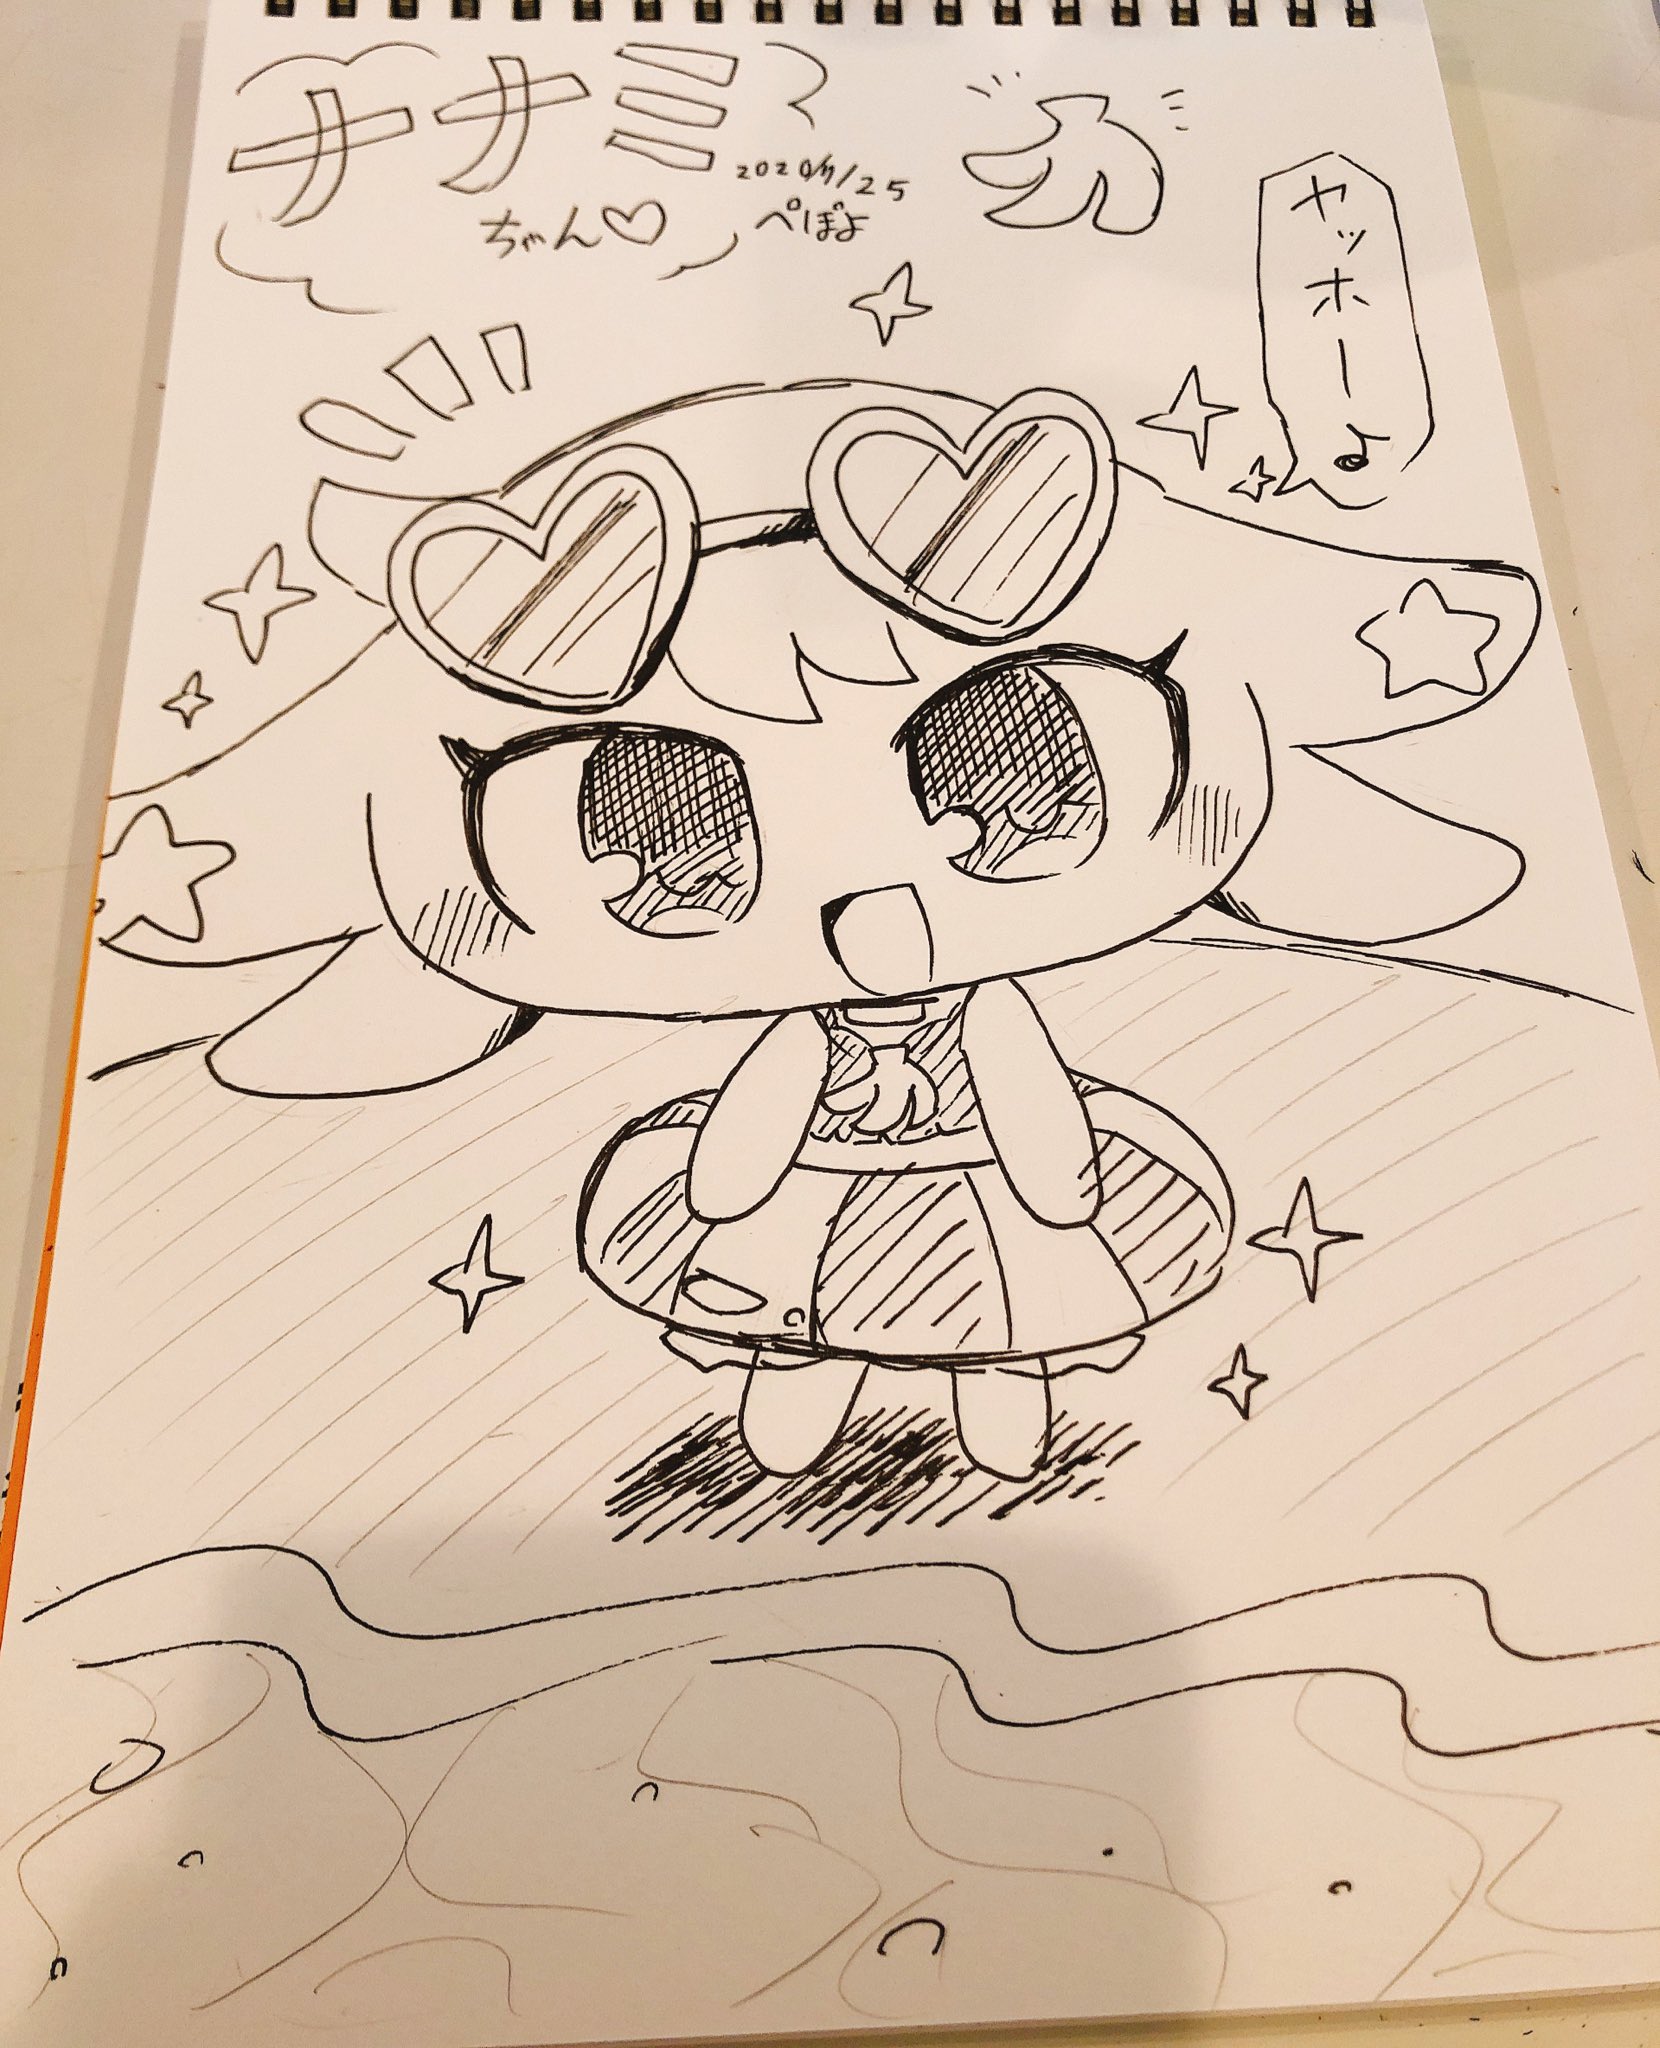 ナナミ
ちゃん♡
2020/7/25
ぺぽよ
ヤッホーよ